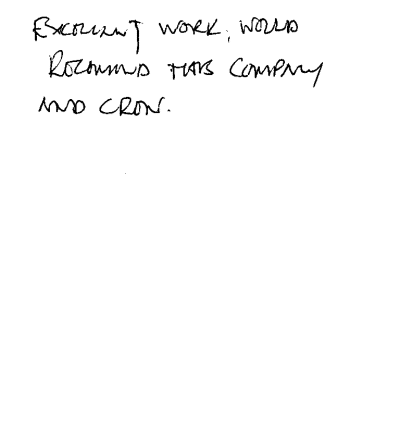 Excellent work, would
Recommend this company
and crew.